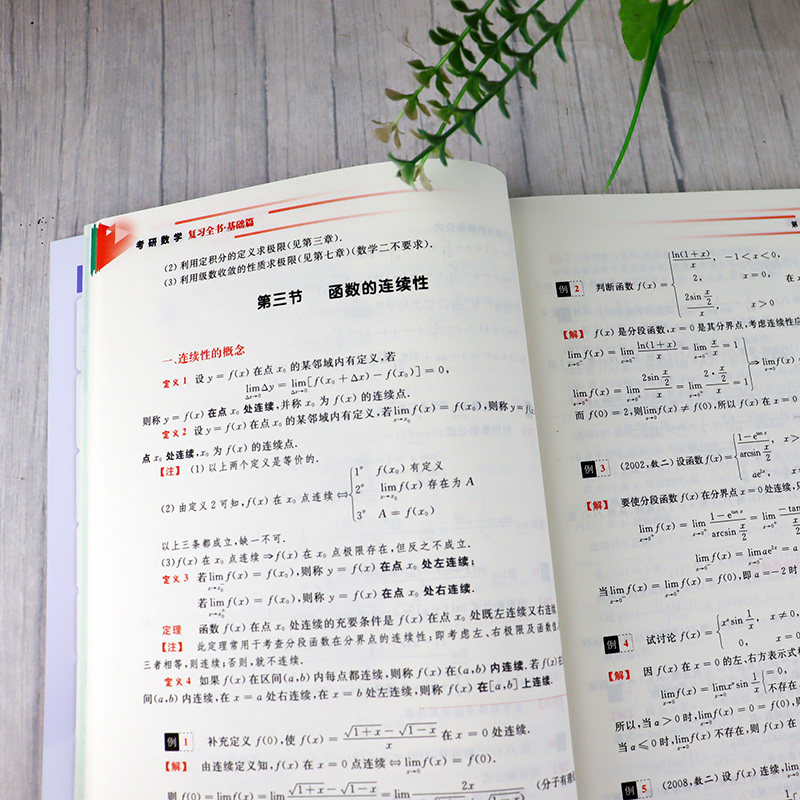 考研数学 复习全书·基础篇
(2) 利用定积分的定义求极限(见第三章).
(3) 利用级数收敛的性质求极限(见第七章)(数学二不要求).
第三节 函数的连续性
一、连续性的概念
定义1 设 y = f(x) 在点 x₀ 的某邻域内有定义,若
lim_{Δx→0} Δy = lim_{Δx→0} [f(x₀ + Δx) - f(x₀)] = 0,
则称 y = f(x) 在点 x₀ 处连续,并称 x₀ 为 f(x) 的连续点.
定义2 设 y = f(x) 在点 x₀ 的某邻域内有定义,若 lim_{x→x₀} f(x) = f(x₀),则称 y = f(x)
点 x₀ 处连续,x₀ 为 f(x) 的连续点.
【注】 (1) 以上两个定义是等价的.
(2) 由定义2可知,f(x) 在 x₀ 点连续 ⇔ { 1° f(x₀) 有定义
2° lim_{x→x₀} f(x) 存在为 A
3° A = f(x₀)
以上三条都成立,缺一不可.
(3) f(x) 在 x₀ 点连续 ⇒ f(x) 在 x₀ 点极限存在,但反之不成立.
定义3 若 lim_{x→x₀⁻} f(x) = f(x₀),则称 y = f(x) 在点 x₀ 处左连续;
若 lim_{x→x₀⁺} f(x) = f(x₀),则称 y = f(x) 在点 x₀ 处右连续.
定理 函数 f(x) 在点 x₀ 处连续的充要条件是 f(x) 在点 x₀ 处既左连续又右连续
【注】 此定理常用于考查分段函数在分界点的连续性;即考虑左、右极限及函数值
三者相等,则连续;否则,就不连续.
定义4 如果 f(x) 在区间(a,b) 内每点都连续,则称 f(x) 在(a,b) 内连续.若 f(x) 在
间(a,b) 内连续,在 x = a 处右连续,在 x = b 处左连续,则称 f(x) 在[a,b] 上连续.
例 1 补充定义 f(0),使 f(x) = (√(1+x) - √(1-x))/x 在 x = 0 处连续.
【解】 由连续性定义知,f(x) 在 x = 0 点连续 ⇔ lim_{x→0} f(x) = f(0).
则 f(0) = lim f(x) = lim (√(1+x) - √(1-x)) = lim 2x (分子有理
第
例 2 判断函数 f(x) = { ln(1+x)/x, -1 < x < 0,
2, x = 0, 在 x
2sin(x/2)/x, x > 0
【解】 f(x) 是分段函数,x = 0 是其分界点,考虑连续性应
lim_{x→0⁻} f(x) = lim_{x→0⁻} ln(1+x)/x = lim_{x→0⁻} x/x = 1
lim_{x→0⁺} f(x) = lim_{x→0⁺} 2sin(x/2)/x = lim_{x→0⁺} (2·x/2)/x = 1 } ⇒ lim_{x→0} f(x)
而 f(0) = 2,则 lim_{x→0} f(x) ≠ f(0),所以 f(x) 在 x = 0
例 3 (2002,数二) 设函数 f(x) = { (1-e^{tan x})/(arcsin(x/2)), x >
ae^{2x}, x
【解】 要使分段函数 f(x) 在分界点 x = 0 处连续,只
lim_{x→0⁺} f(x) = lim_{x→0⁺} (1-e^{tan x})/(arcsin(x/2)) = lim_{x→0⁺} -tan
lim_{x→0⁻} f(x) = lim_{x→0⁻} ae^{2x} = a
当 lim_{x→0⁻} f(x) = lim_{x→0⁺} f(x) = f(0),即 a = -2 时
例 4 试讨论 f(x) = { x^a sin(1/x), x ≠ 0,
0, x = 0
【解】 因 f(x) 在 x = 0 的左、右方表示式相
lim_{x→0} f(x) = lim_{x→0} x^a sin(1/x) { = 0,
不存在
所以,当 a > 0 时,lim_{x→0} f(x) = 0 = f(0),
当 a ≤ 0 时,lim_{x→0} f(x) 不存在,则 f(x) 在
例 5 (2008,数二) 设 f(x) 连续,lim